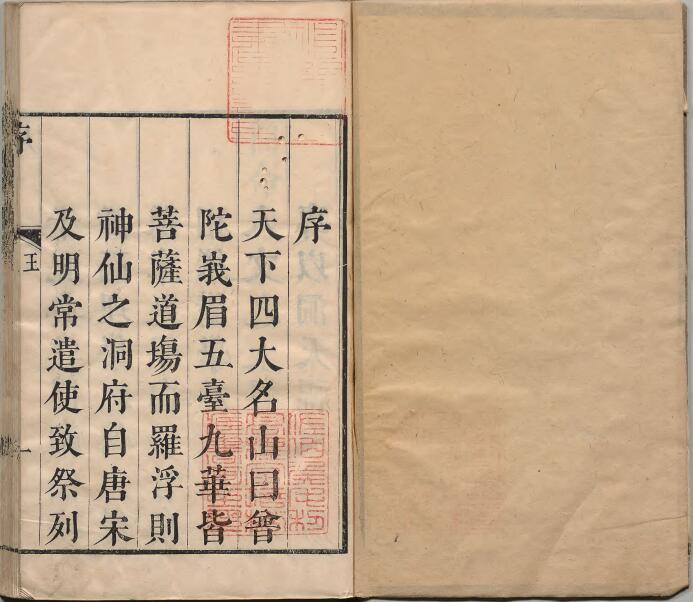 序
天下四大名山曰普
陀峩眉五臺九華皆
菩薩道塲而羅浮則
神仙之洞府自唐宋
及明常遣使致祭列
序
王
一